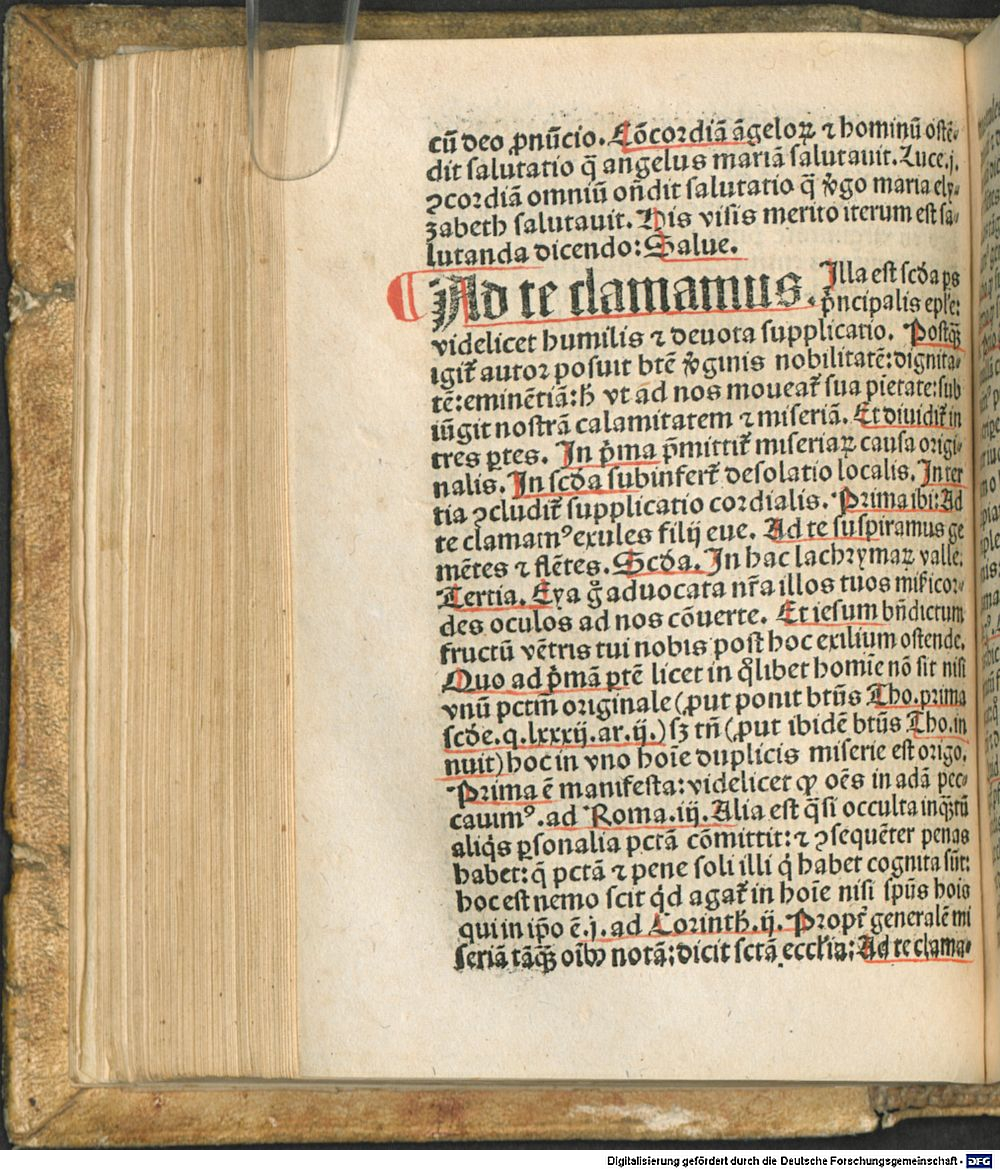 cū deo ꝓnūcio. Cōcordiā āgeloꝝ ⁊ hominū ostē⸗
dit salutatio q̄ angelus mariā salutauit. Luce.j.
ꝯcordiā omniū oñdit salutatio q̄ v̇go maria ely⸗
zabeth salutauit. His visis merito iterum est sa⸗
lutanda dicendo: Salue.
Ad te clamamus. Illa est scďa ps
pͥncipalis epl̄e:
videlicet humilis ⁊ deuota supplicatio. Postqꝫ̄
igit᷑ autor posuit btē v̇ginis nobilitatē: dignita⸗
tē: eminētiā: ꝥ vt ad nos moueat᷑ sua pietate: sub
iūgit nostrā calamitatem ⁊ miseriā. Et diuidit᷑ in
tres ꝑtes. In pͥma p̄mittit᷑ miseriaꝝ causa origi⸗
nalis. In scďa subinfert᷑ desolatio localis. In ter
tia ꝯcludit᷑ supplicatio cordialis. Prima ibi: Ad
te clamamꝰ exules filij eue. Ad te suspiramus ge
mētes ⁊ flētes. Scďa. In hac lachrymaꝝ valle.
Tertia. Eya g̊ aduocata nr̄a illos tuos mīs̄icor⸗
des oculos ad nos cōuerte. Et iesum bn̄dictum
fructū vētris tui nobis post hoc exilium ostende.
Quo ad pͥmā ꝑtē licet in qͦlibet homīe nō sit nisi
vnū pctm̄ originale (ꝓut ponit btūs Tho. prima
scďe. q. lxxxij. ar. ij.) sꝫ tn̄ (ꝓut ibidē btūs Tho. in
nuit) hoc in vno hoīe duplicis miserie est origo.
Prima ē manifesta: videlicet ꝙ oēs in adā pec⸗
cauimꝰ. ad Roma. iij. Alia est q̄si occulta inqꝫ̄tū
aliqͥs ꝑsonalia pctā cōmittit: ⁊ ꝯsequēter penas
habet: q̄ pctā ⁊ pene soli illi qͥ habet cognita sūt:
hoc est nemo scit qͥd agat᷑ in hoīe nisi spūs hois
qui in ip̄o ē. j. ad Corinth̄. ij. Propt᷑ generalē mi
seriā tāqꝫ̄ oībꝰ notā: dicit sctā eccl̄ia: Ad te clama⸗
Digitalisierung gefördert durch die Deutsche Forschungsgemeinschaft - DFG